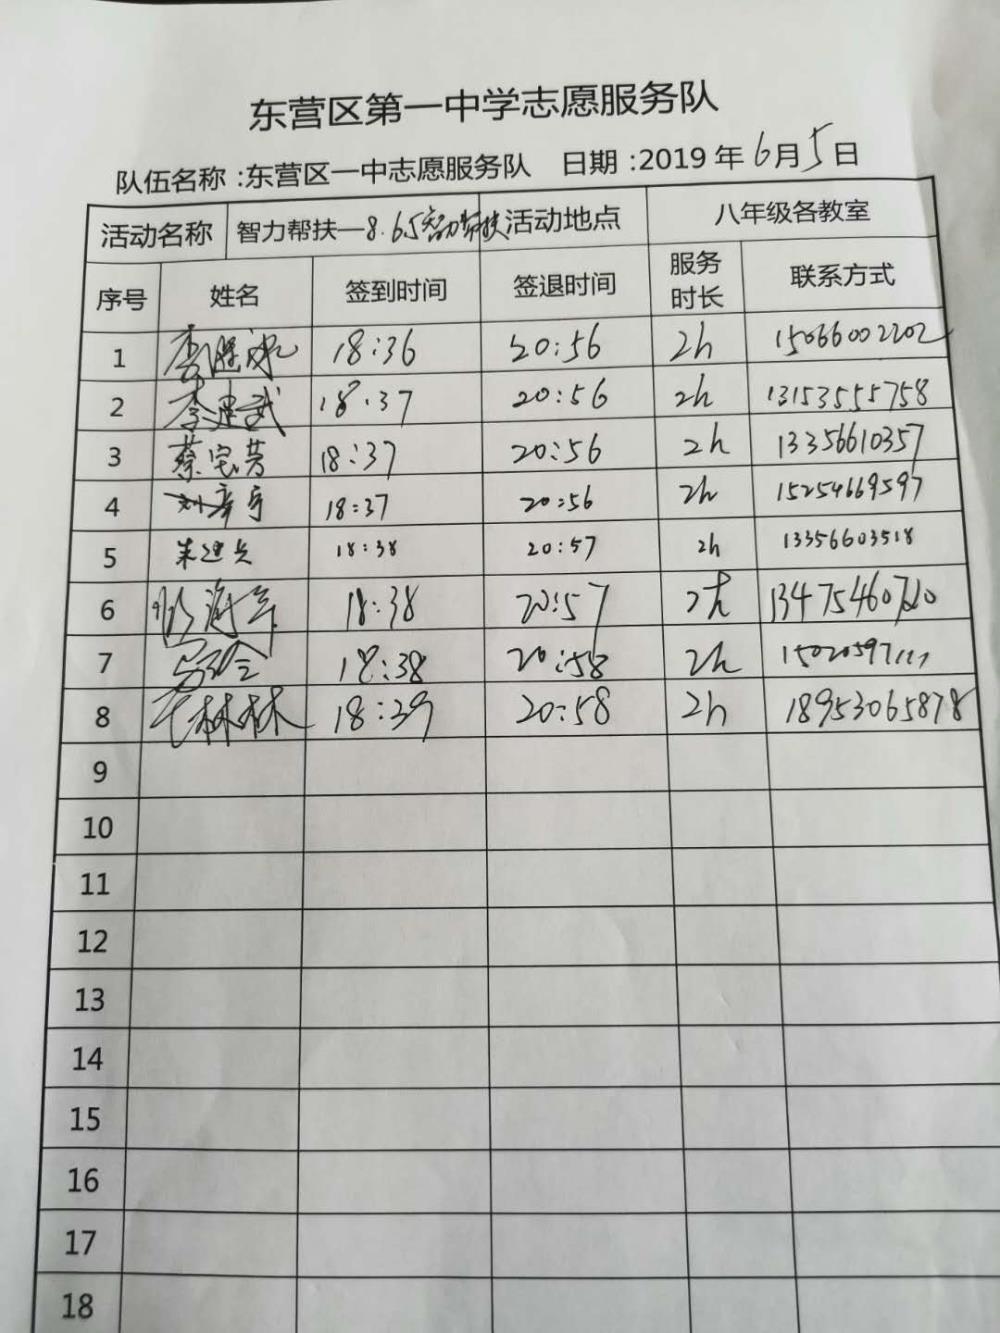 东营区第一中学志愿服务队
队伍名称:东营区一中志愿服务队 日期:2019年6月5日
活动名称 智力帮扶—8.65智力帮扶 活动地点 八年级各教室
序号 姓名 签到时间 签退时间 服务时长 联系方式
1 李 18:36 20:56 2h 15066002202
2 李建武 18:37 20:56 2h 13153555758
3 蔡宝芳 18:37 20:56 2h 13356610357
4 刘彦亭 18:37 20:56 2h 15254669597
5 朱迎兵 18:38 20:57 2h 13356603518
6 18:38 20:57 2h
7 18:38 20:58 2h
8 林林 18:39 20:58 2h 18953065878
9
10
11
12
13
14
15
16
17
18